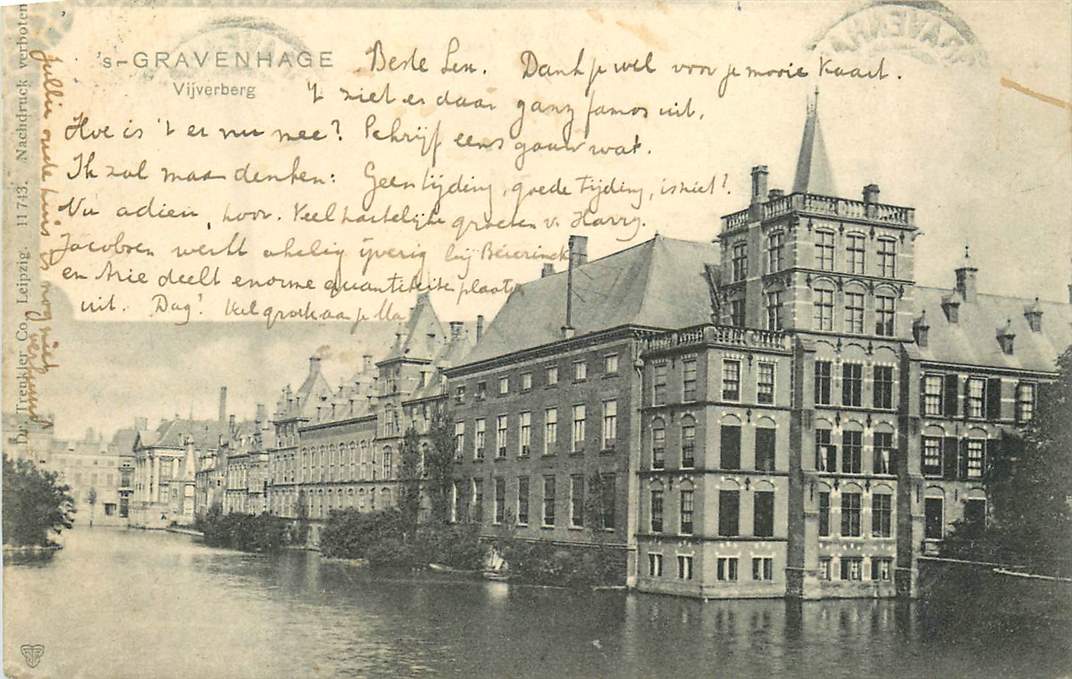 's-GRAVENHAGE
Vijverberg
Beste Len. Dank je wel voor je mooie kaart.
't ziet er daar ganz famos uit.
Hoe is 't er nu mee? Schrijf eens gauw wat.
Ik zal maar denken: Geen tijding, goede tijding, is niet?
Nu adieu, hoor. Veel hartelijke groeten v. Harry.
Jacobsen werkt ijverig bij
en Arie deelt enorme quantiteiten plaatsen
uit. Dag!
Dr. Trenkler Co., Leipzig. 11743. Nachdruck verboten
Jullie oude huis is nog niet
verhuurd